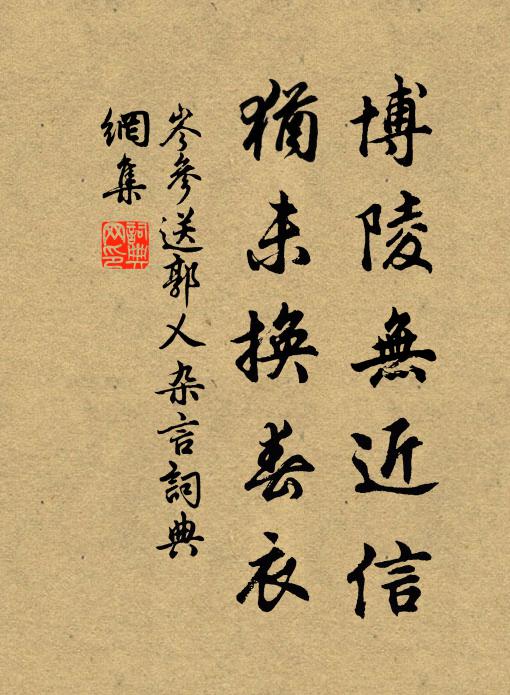 博陵無近信
猶未換春衣
岑參送郭乂杂言詞典
網集
詞典
网印